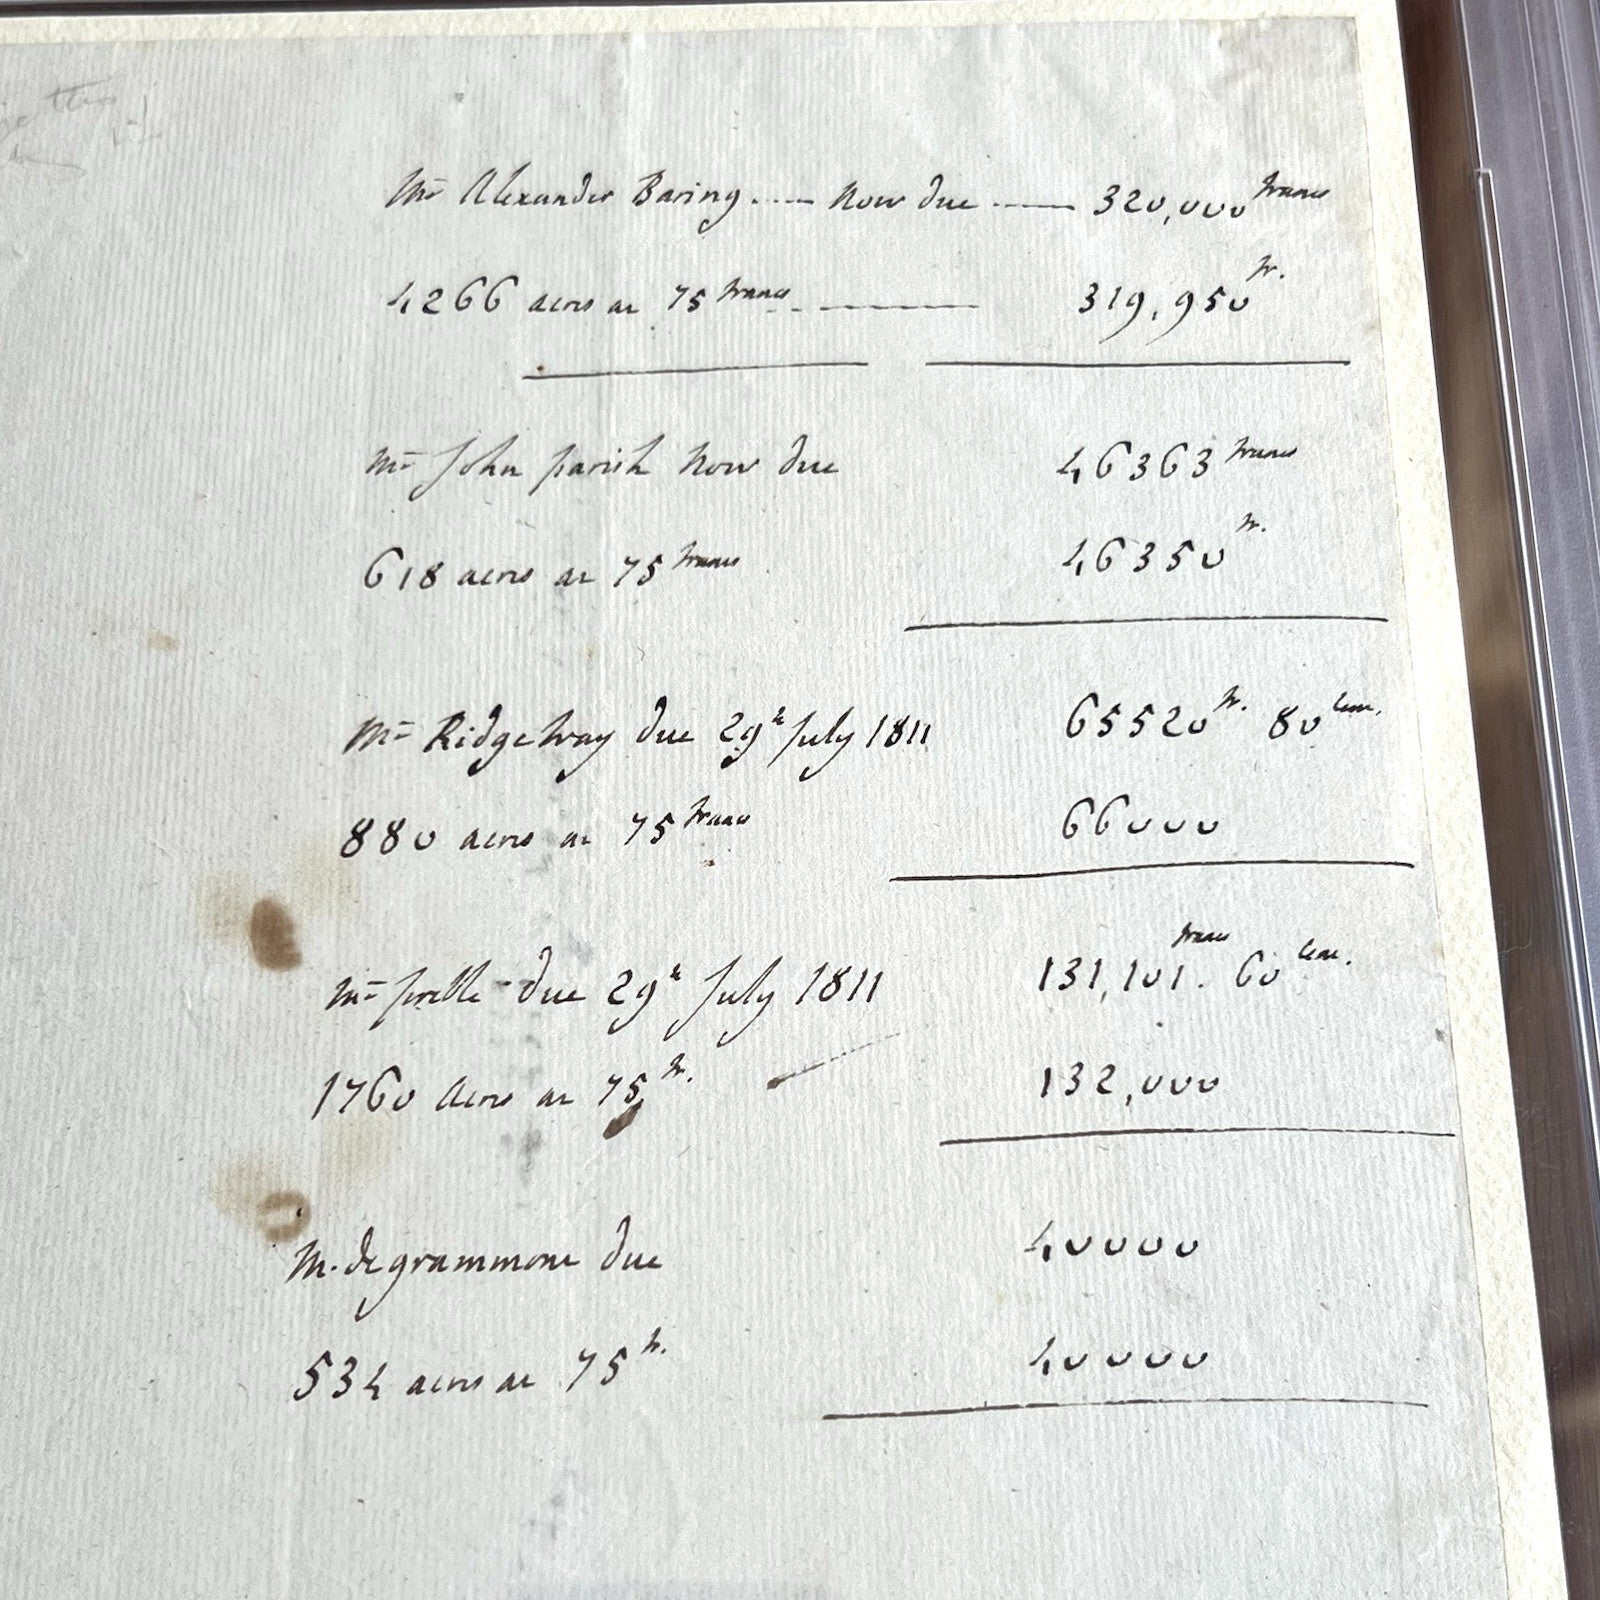 Mr Alexander Baring .... Now due ---- 320,000 francs
4266 acres at 75 francs ---- 319,950 fr.
Mr John parish Now due 46363 francs
618 acres at 75 francs 46350 fr.
Mr Ridgeway due 29th July 1811 65520 fr. 80 Cent.
880 acres at 75 francs 66000
Mr due 29th July 1811 131,101. francs 60 Cent.
1760 acres at 75 fr. 132,000
M. de grammont due 40000
534 acres at 75 fr. 40000